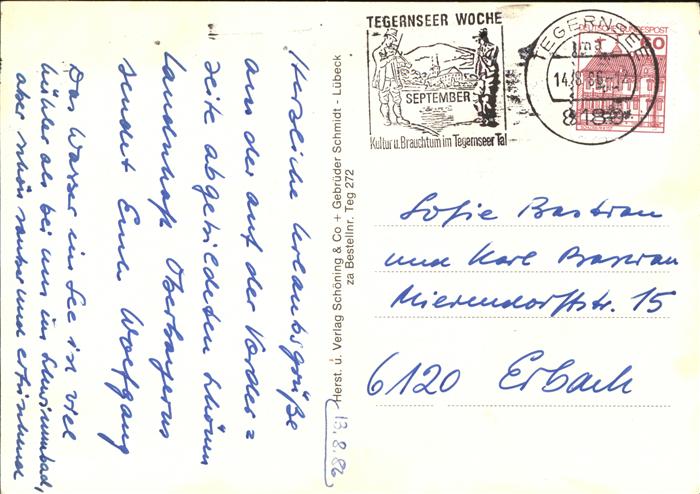 Herzliche Urlaubsgrüße
aus der auf der Vorder=
seite abgebildeten schönen
Landschaft Oberbayerns
sendet Euer Wolfgang
Das Wasser im See ist viel
kühler als bei uns im Schwimmbad,
aber schön sauber und erfrischend
Herst. u. Verlag Schöning & Co + Gebrüder Schmidt - Lübeck
za Bestellnr. Teg 272
13.8.86
TEGERNSEER WOCHE
SEPTEMBER
Kultur u. Brauchtum im Tegernseer Tal
TEGERNSEE
14.8.86
8180
DEUTSCHE BUNDESPOST
60
Sofie Bastian
und Karl Bastian
Mierendorffstr. 15
6120 Erbach